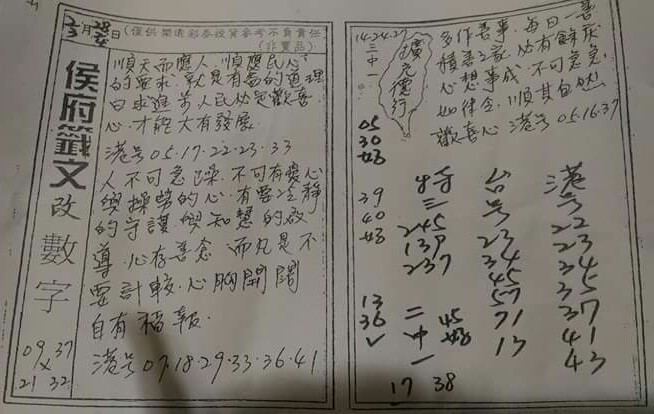 3月28日(僅供開選彩券投資參考不負責任
(非賣品)
侯府籤文改數字
09 37
×
21 32
順天而應人.順應民心
的要求.就是有富的道理
日求進步人民必定歡喜
心.才能大有發展.
港号05.17.22.23.33
人不可急躁.不可有憂心
與操勞的心.有要冷靜
的守護.與知慧的啟
導.心存善念.而凡是不
要計較.心胸開闊
自有福報.
港号07.18.29.33.36.41
14.24.27
三中一
擴充德行
多作善事.每日一善
積善之家.必有餘慶
心想事成.不可急急
如律令.順其自然
歡喜心 港号 05.16.37
05
30
39
40
13
36
✓
三
245
138
237
二中一
45
17 38
台号
23
34
45
57
71
13
港号
22
23
34
35
37
41
43